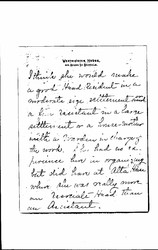 Westminster House,
I think she would make
a good Head Resident in a
moderate size settlement and
a Resistant in a large
settlement or a
with a Warden in charge of
the work. She had no ex-
perience here in organizing
but did have at Alta House
where she was really more
an Associate Head than
an Assistant.